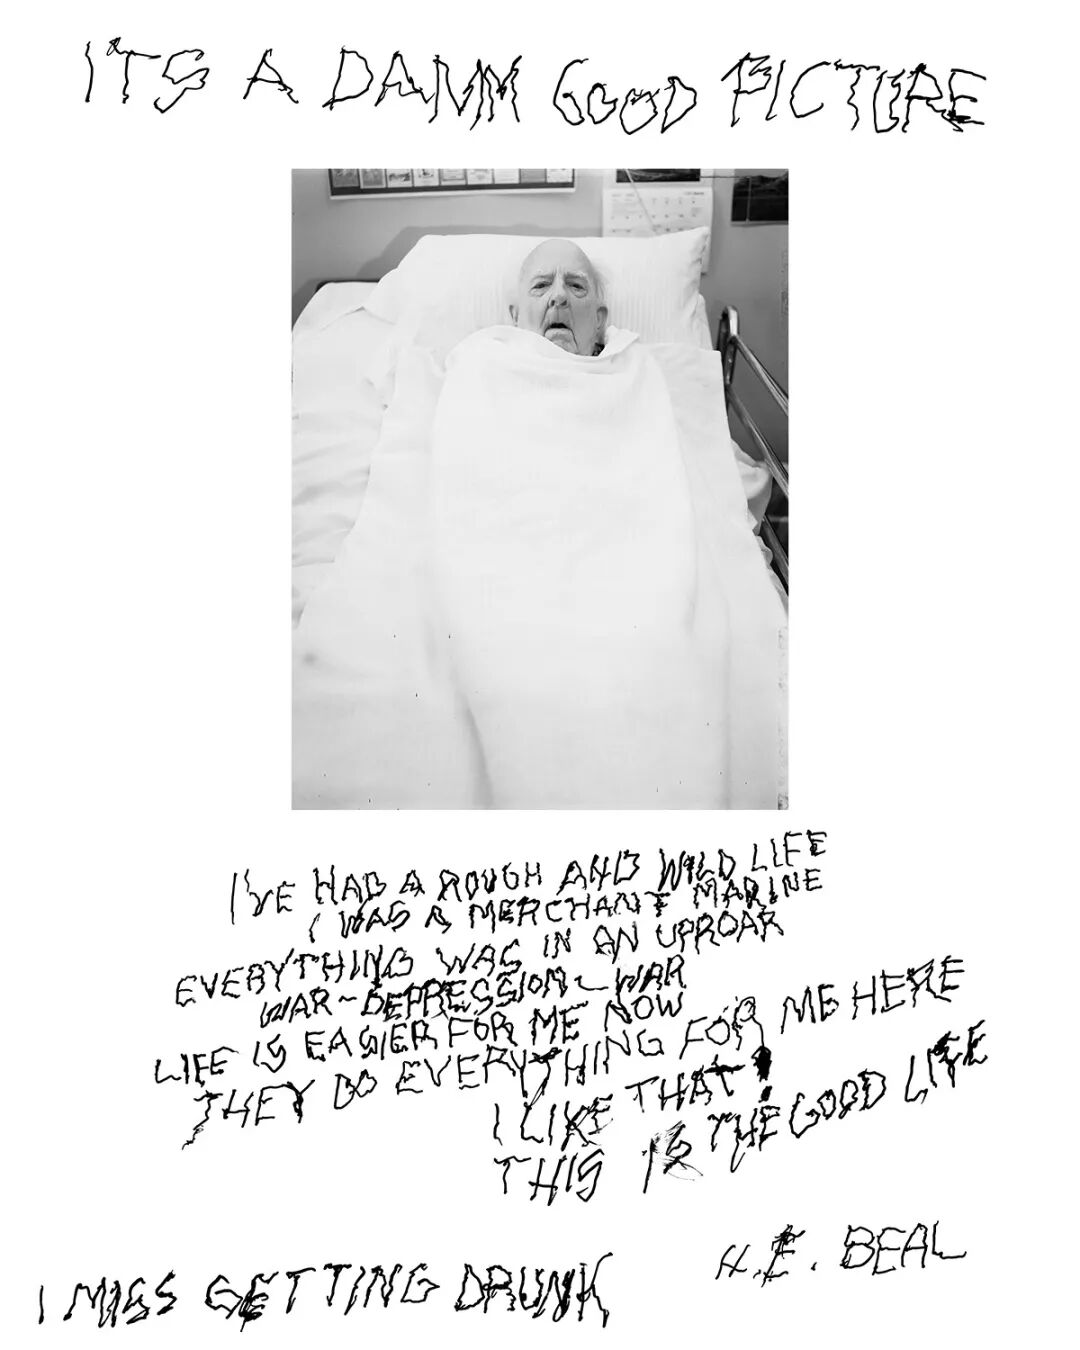 IT'S A DAMM GOOD PICTURE
I'VE HAD A ROUGH AND WILD LIFE
I WAS A MERCHANT MARINE
EVERYTHING WAS IN AN UPROAR
WAR ~ DEPRESSION ~ WAR
LIFE IS EASIER FOR ME NOW
THEY DO EVERYTHING FOR ME HERE
I LIKE THAT!
THIS IS THE GOOD LIFE
H.E. BEAL
I MISS GETTING DRUNK